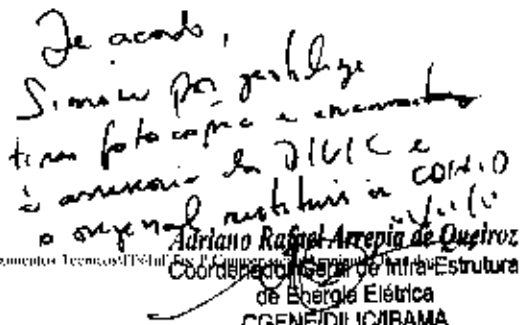 De acordo,
Simone por gentileza
tirar fotocópia e encaminhar
à assessoria da DILIC e
o original restituir à COHID
Adriano Rafael Arrepia de Queiroz
Coordenador Geral de Infra-Estrutura
de Energia Elétrica
CGENE/DILIC/IBAMA